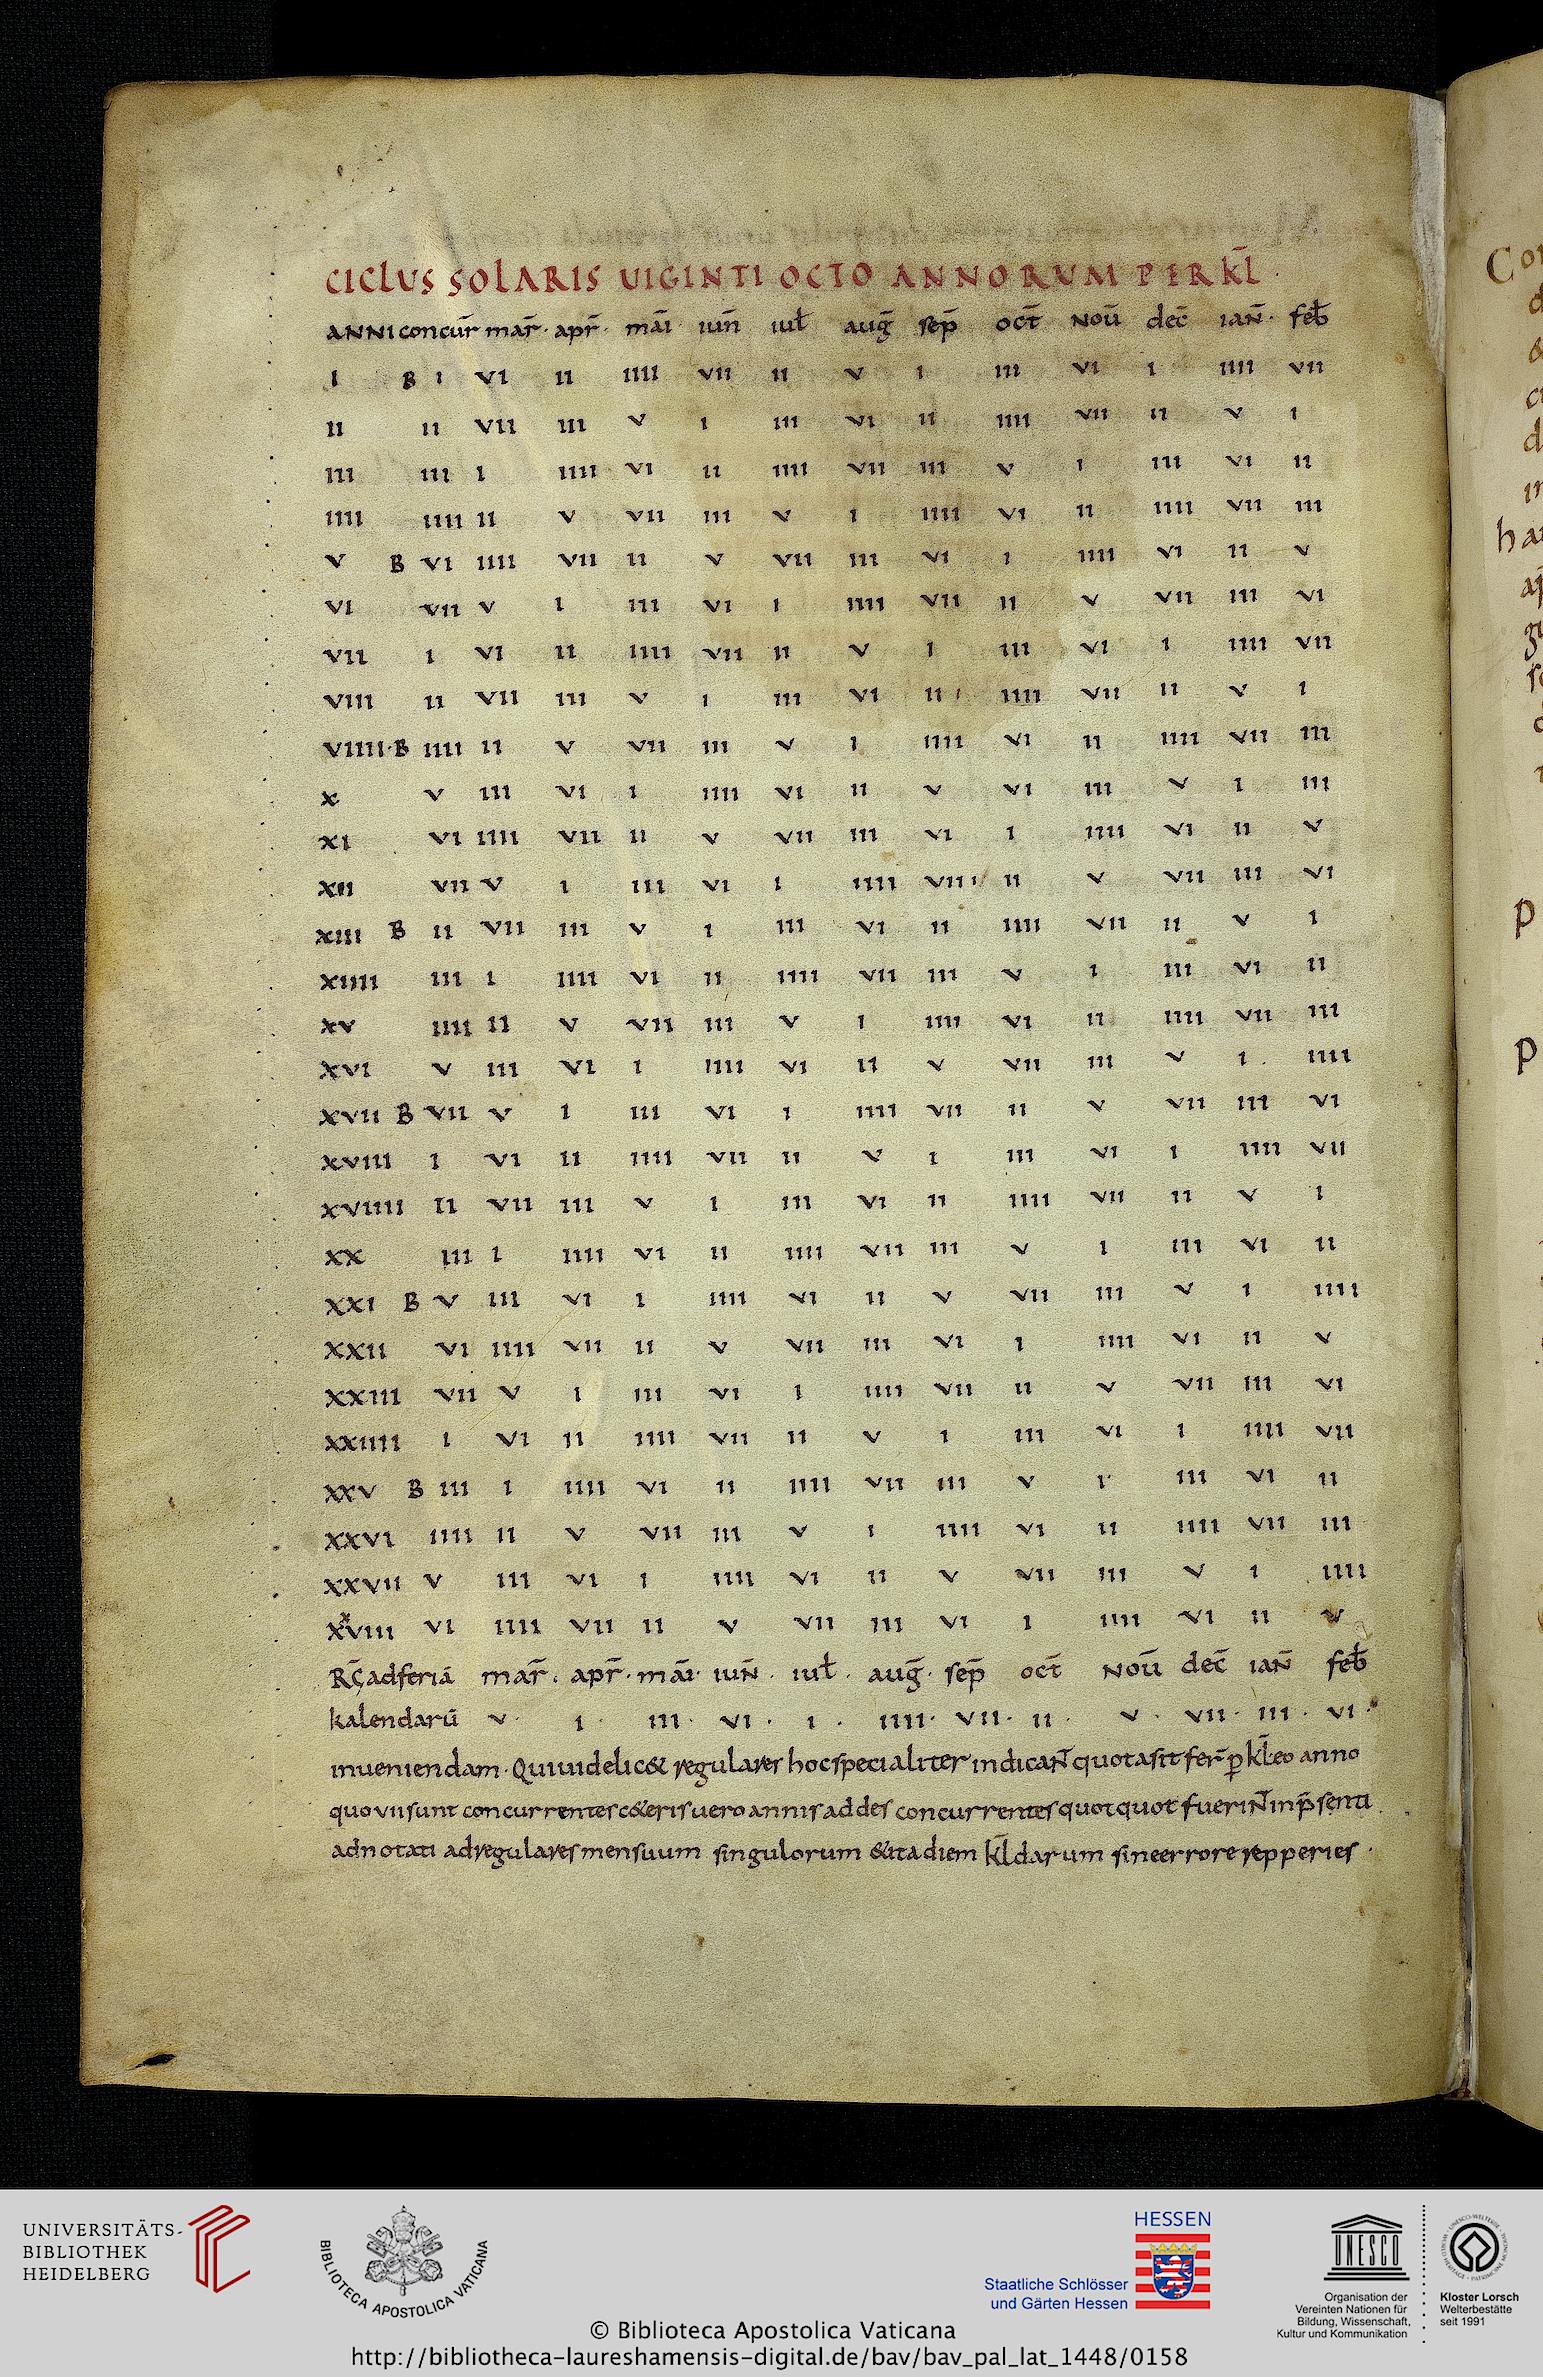 CICLUS SOLARIS UIGINTI OCTO ANNORUM PER KL̄
ANNI concur̄ mar̄· apr̄· māi iun̄ iul̄ auḡ sep̄ oct̄ Nou̅ dec̄ iaN̄· feb̄
I B I VI II IIII VII II V I III VI I IIII VII
II II VII III V I III VI II IIII VII II V I
III III I IIII VI II IIII VII III V I III VI II
IIII IIII II V VII III V I IIII VI II IIII VII III
V B VI IIII VII II V VII III VI I IIII VI II V
VI VII V I III VI I IIII VII II V VII III VI
VII I VI II IIII VII II V I III VI I IIII VII
VIII II VII III V I III VI II IIII VII II V I
VIIII·B IIII II V VII III V I IIII VI II IIII VII III
X V III VI I IIII VI II V VI III V I III
XI VI IIII VII II V VII III VI I IIII VI II V
XII VII V I III VI I IIII VIII II V VII III VI
XIII B II VII III V I III VI II IIII VII II V I
XIIII III I IIII VI II IIII VII III V I III VI II
XV IIII II V VII III V I IIII VI II IIII VII III
XVI V III VI I IIII VI II V VII III V I IIII
XVII B VII V I III VI I IIII VII II V VII III VI
XVIII I VI II IIII VII II V I III VI I IIII VII
XVIIII II VII III V I III VI II IIII VII II V I
XX III I IIII VI II IIII VII III V I III VI II
XXI B V III VI I IIII VI II V VII III V I IIII
XXII VI IIII VII II V VII III VI I IIII VI II V
XXIII VII V I III VI I IIII VII II V VII III VI
XXIIII I VI II IIII VII II V I III VI I IIII VII
XXV B III I IIII VI II IIII VII III V I III VI II
XXVI IIII II V VII III V I IIII VI II IIII VII III
XXVII V III VI I IIII VI II V VII III V I IIII
XXVIII VI IIII VII II V VII III VI I IIII VI II V
adferiā mar̄· apr̄· māi· iuN̄· iul̄· auḡ· sep̄ oct̄ Nou̅ dec̄ iaN̄ feb̄
kalendarū V· I· III· VI· I· IIII· VII· II· V· VII· III· VI·
inueniendam· Quiuidelic& regulares hocspecialiter indicaN̄ quotasit fer̄ p̱ kl̄ eo anno
quo vii sunt concurrentes c&eris uero annis addes concurrentes quotquot fueriN̄ inp̄senti
adnotati adregulares mensuum singulorum &ita diem kl̄darum sineerrore repperies·
UNIVERSITÄTS-
BIBLIOTHEK
HEIDELBERG
BIBLIOTECA APOSTOLICA VATICANA
HESSEN
Staatliche Schlösser
und Gärten Hessen
UNESCO
Organisation der
Vereinten Nationen für
Bildung, Wissenschaft,
Kultur und Kommunikation
Kloster Lorsch
Welterbestätte
seit 1991
© Biblioteca Apostolica Vaticana
http://bibliotheca-laureshamensis-digital.de/bav/bav_pal_lat_1448/0158